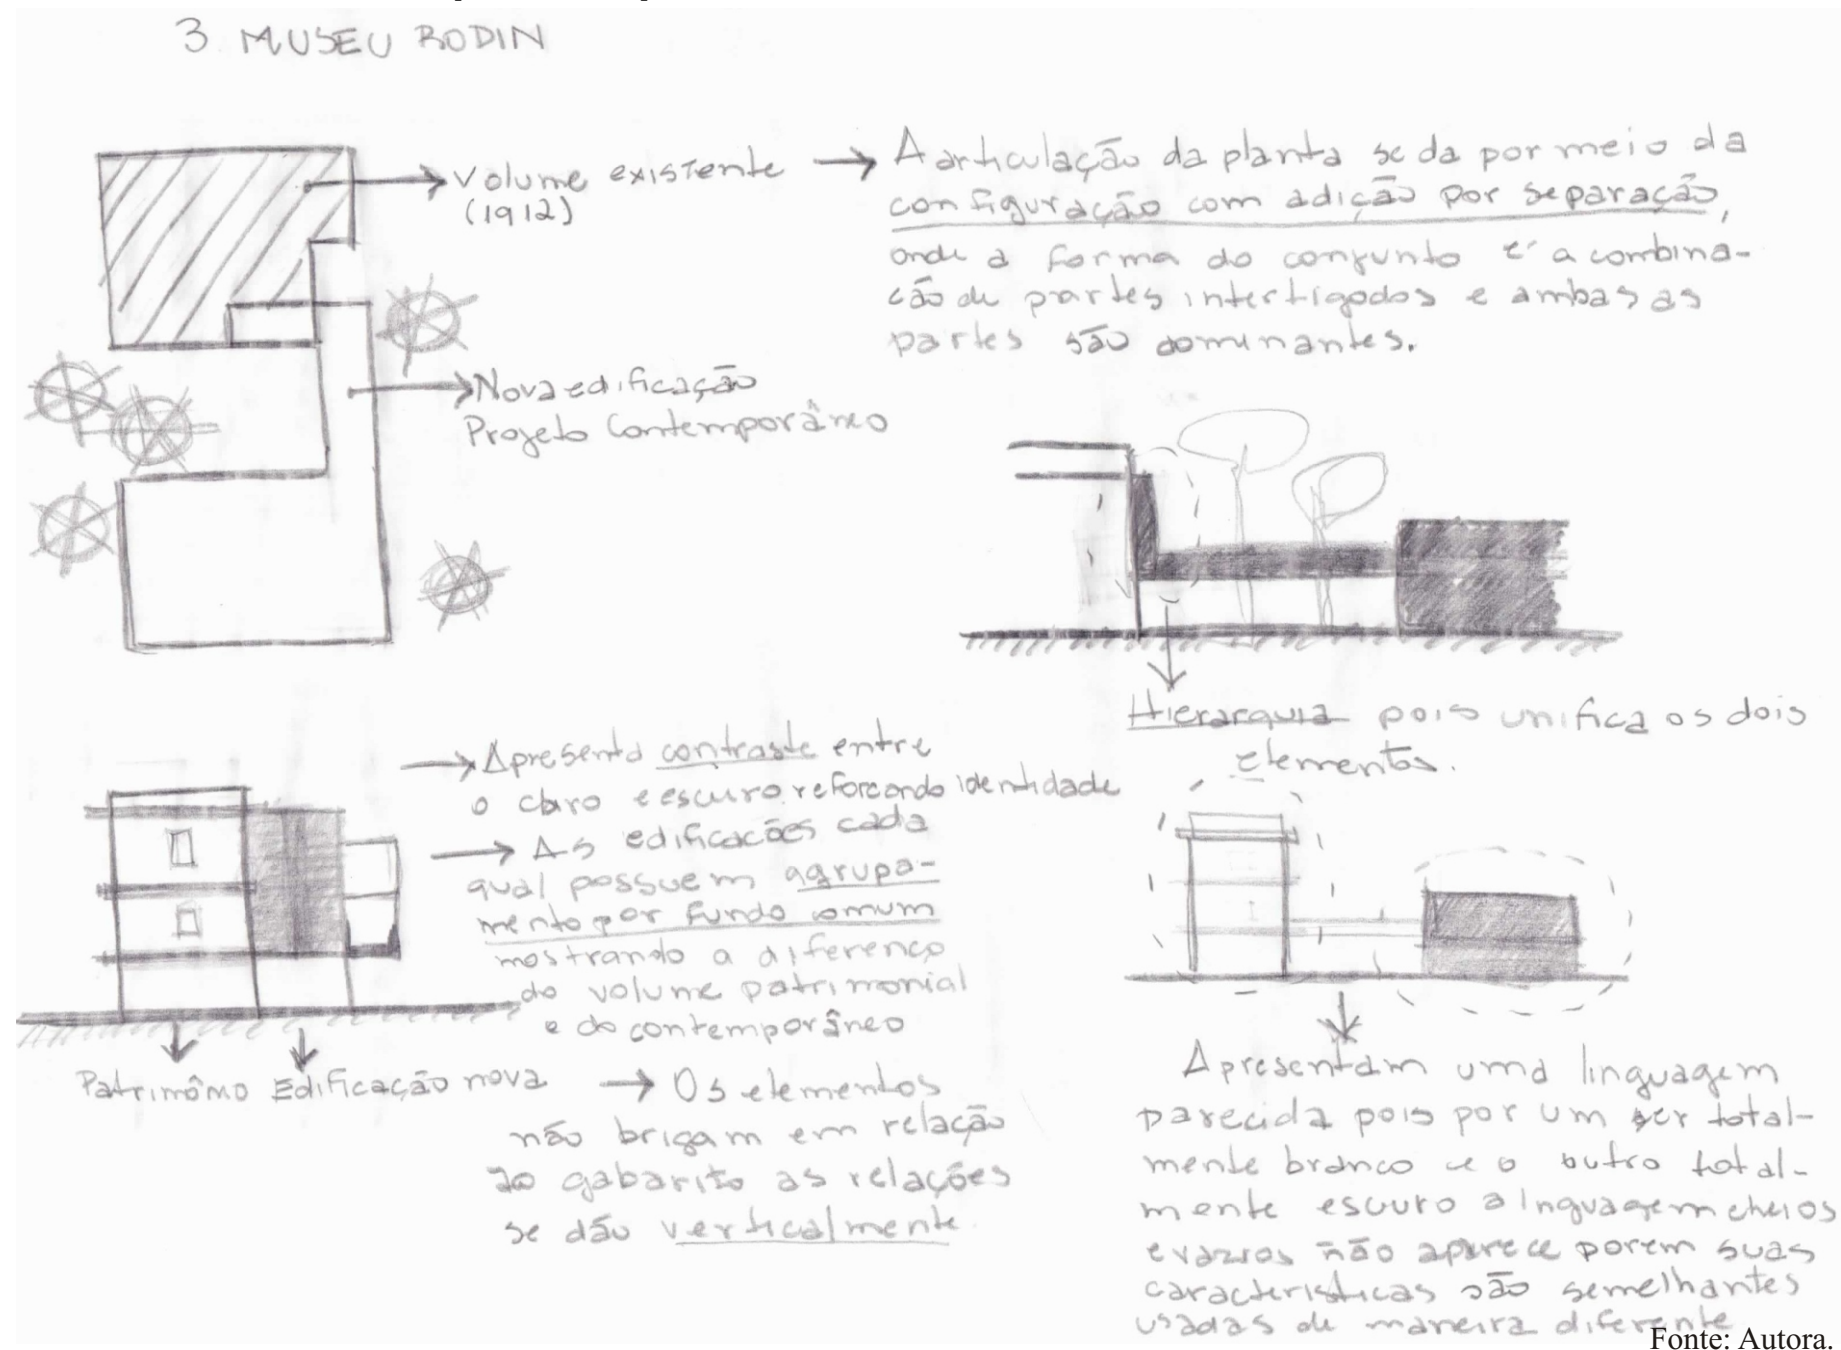 3 MUSEU RODIN
Volume existente
(1912)
A articulação da planta se da por meio da
configuração com adição por separação,
onde a forma do conjunto é a combina-
ção de partes intertigodos e ambas as
partes são dominantes.
Nova edificação
Projeto Contemporâneo
Hierarquia pois unifica os dois
elementos.
Apresenta contraste entre
o claro e escuro reforcando identidade
As edificacões cada
qual possuem agrupa-
mento por fundo comum
mostrando a diferença
do volume patrimonial
e do contemporâneo
Patrimômo Edificação nova
Os elementos
não brigam em relação
ao gabarito as relações
se dão verticalmente.
Apresentam uma linguagem
parecida pois por um ser total-
mente branco e o outro total-
mente escuro a linguagem cheios
e vazios não aparece porem suas
caracteristicas são semelhantes
usadas de maneira diferente
Fonte: Autora.